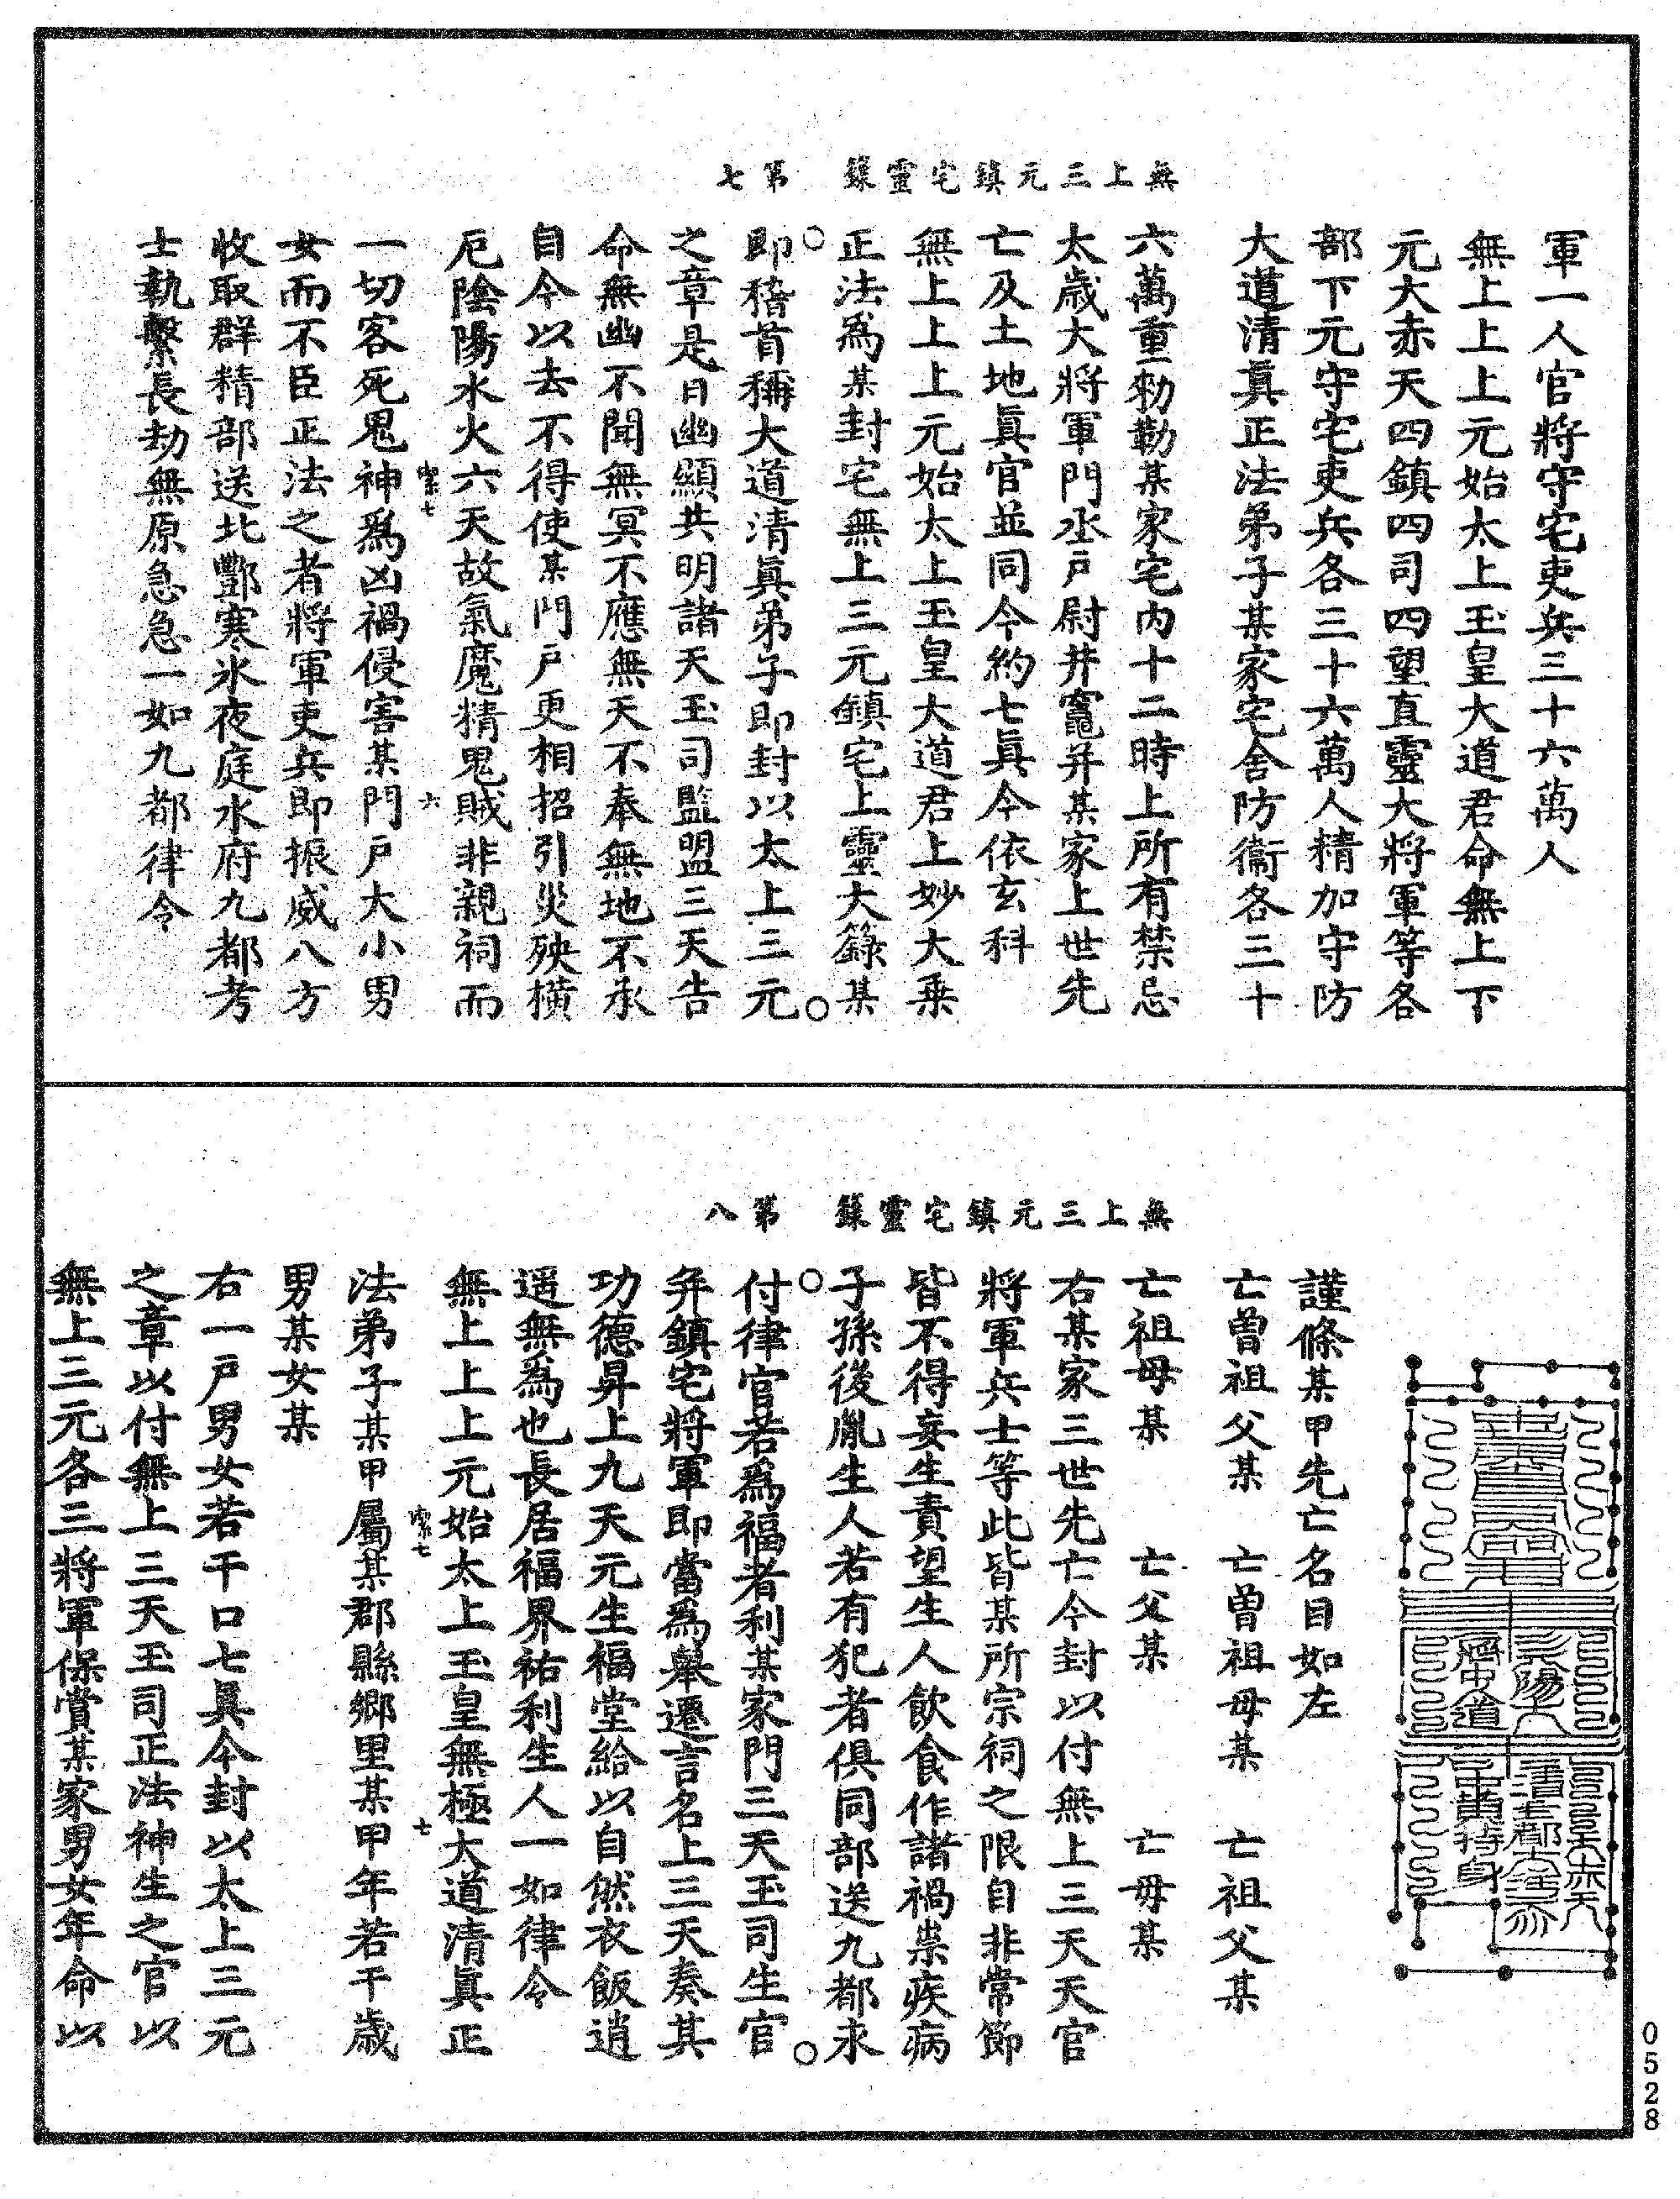 無上三元鎮宅靈籙　第七
軍一人官將守宅吏兵三十六萬人
無上上上元始太上玉皇大道君命無上下
元大赤天四鎮四司四望直靈大將軍等各
部下元守宅吏兵各三十六萬人精加守防
大道清眞正法弟子某家宅舍防衞各三十
六萬重勑勒某家宅內十二時上所有禁忌
太歲大將軍門丞戶尉井竈并某家上世先
亡及土地眞官並同今約七眞今依玄科
無上上上元始太上玉皇大道君上妙大乗
正法爲某封宅無上三元鎮宅上靈大籙某
即稽首稱大道清眞弟子即封以太上三元
之章是日幽顯共明諸天玉司監盟三天告
命無幽不聞無冥不應無天不奉無地不承
自今以去不得使某門戶更相招引災殃橫
厄陰陽水火六天故氣魔精鬼賊非親祠而
一切客死鬼神爲凶禍侵害某門戶大小男
女而不臣正法之者將軍吏兵即振威八方
收取群精部送北酆寒氷夜庭水府九都考
士執繫長劫無原急急一如九都律令
六
無上三元鎮宅靈籙　第八
謹條某甲先亡名目如左
亡曾祖父某　亡曾祖母某　亡祖父某
亡祖母某　亡父某　亡母某
右某家三世先亡今封以付無上三天天官
將軍兵士等此皆某所宗祠之限自非常節
皆不得妄生責望生人飲食作諸禍祟疾病
子孫後胤生人若有犯者俱同部送九都永
付律官若爲福者利某家門三天玉司生官
并鎮宅將軍即當爲舉遷言名上三天奏其
功德昇上九天元生福堂給以自然衣飯逍
遥無爲也長居福界祐利生人一如律令
無上上上元始太上玉皇無極大道清眞正
法弟子某甲屬某郡縣鄉里某甲年若干歲
男某女某
右一戶男女若干口七眞今封以太上三元
之章以付無上三天玉司正法神生之官以
無上三元各三將軍保賞某家男女年命以
七
0528